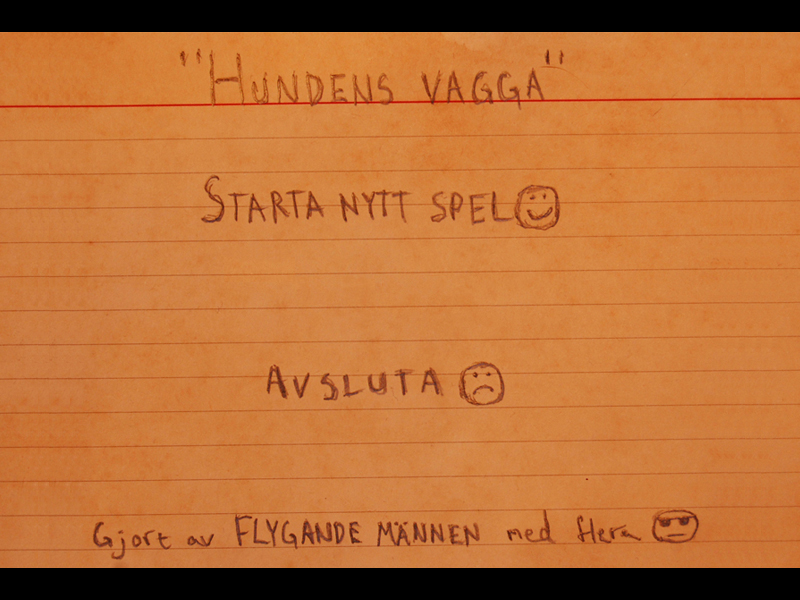 "HUNDENS VAGGA"
STARTA NYTT SPEL
AVSLUTA
Gjort av FLYGANDE MÄNNEN med flera